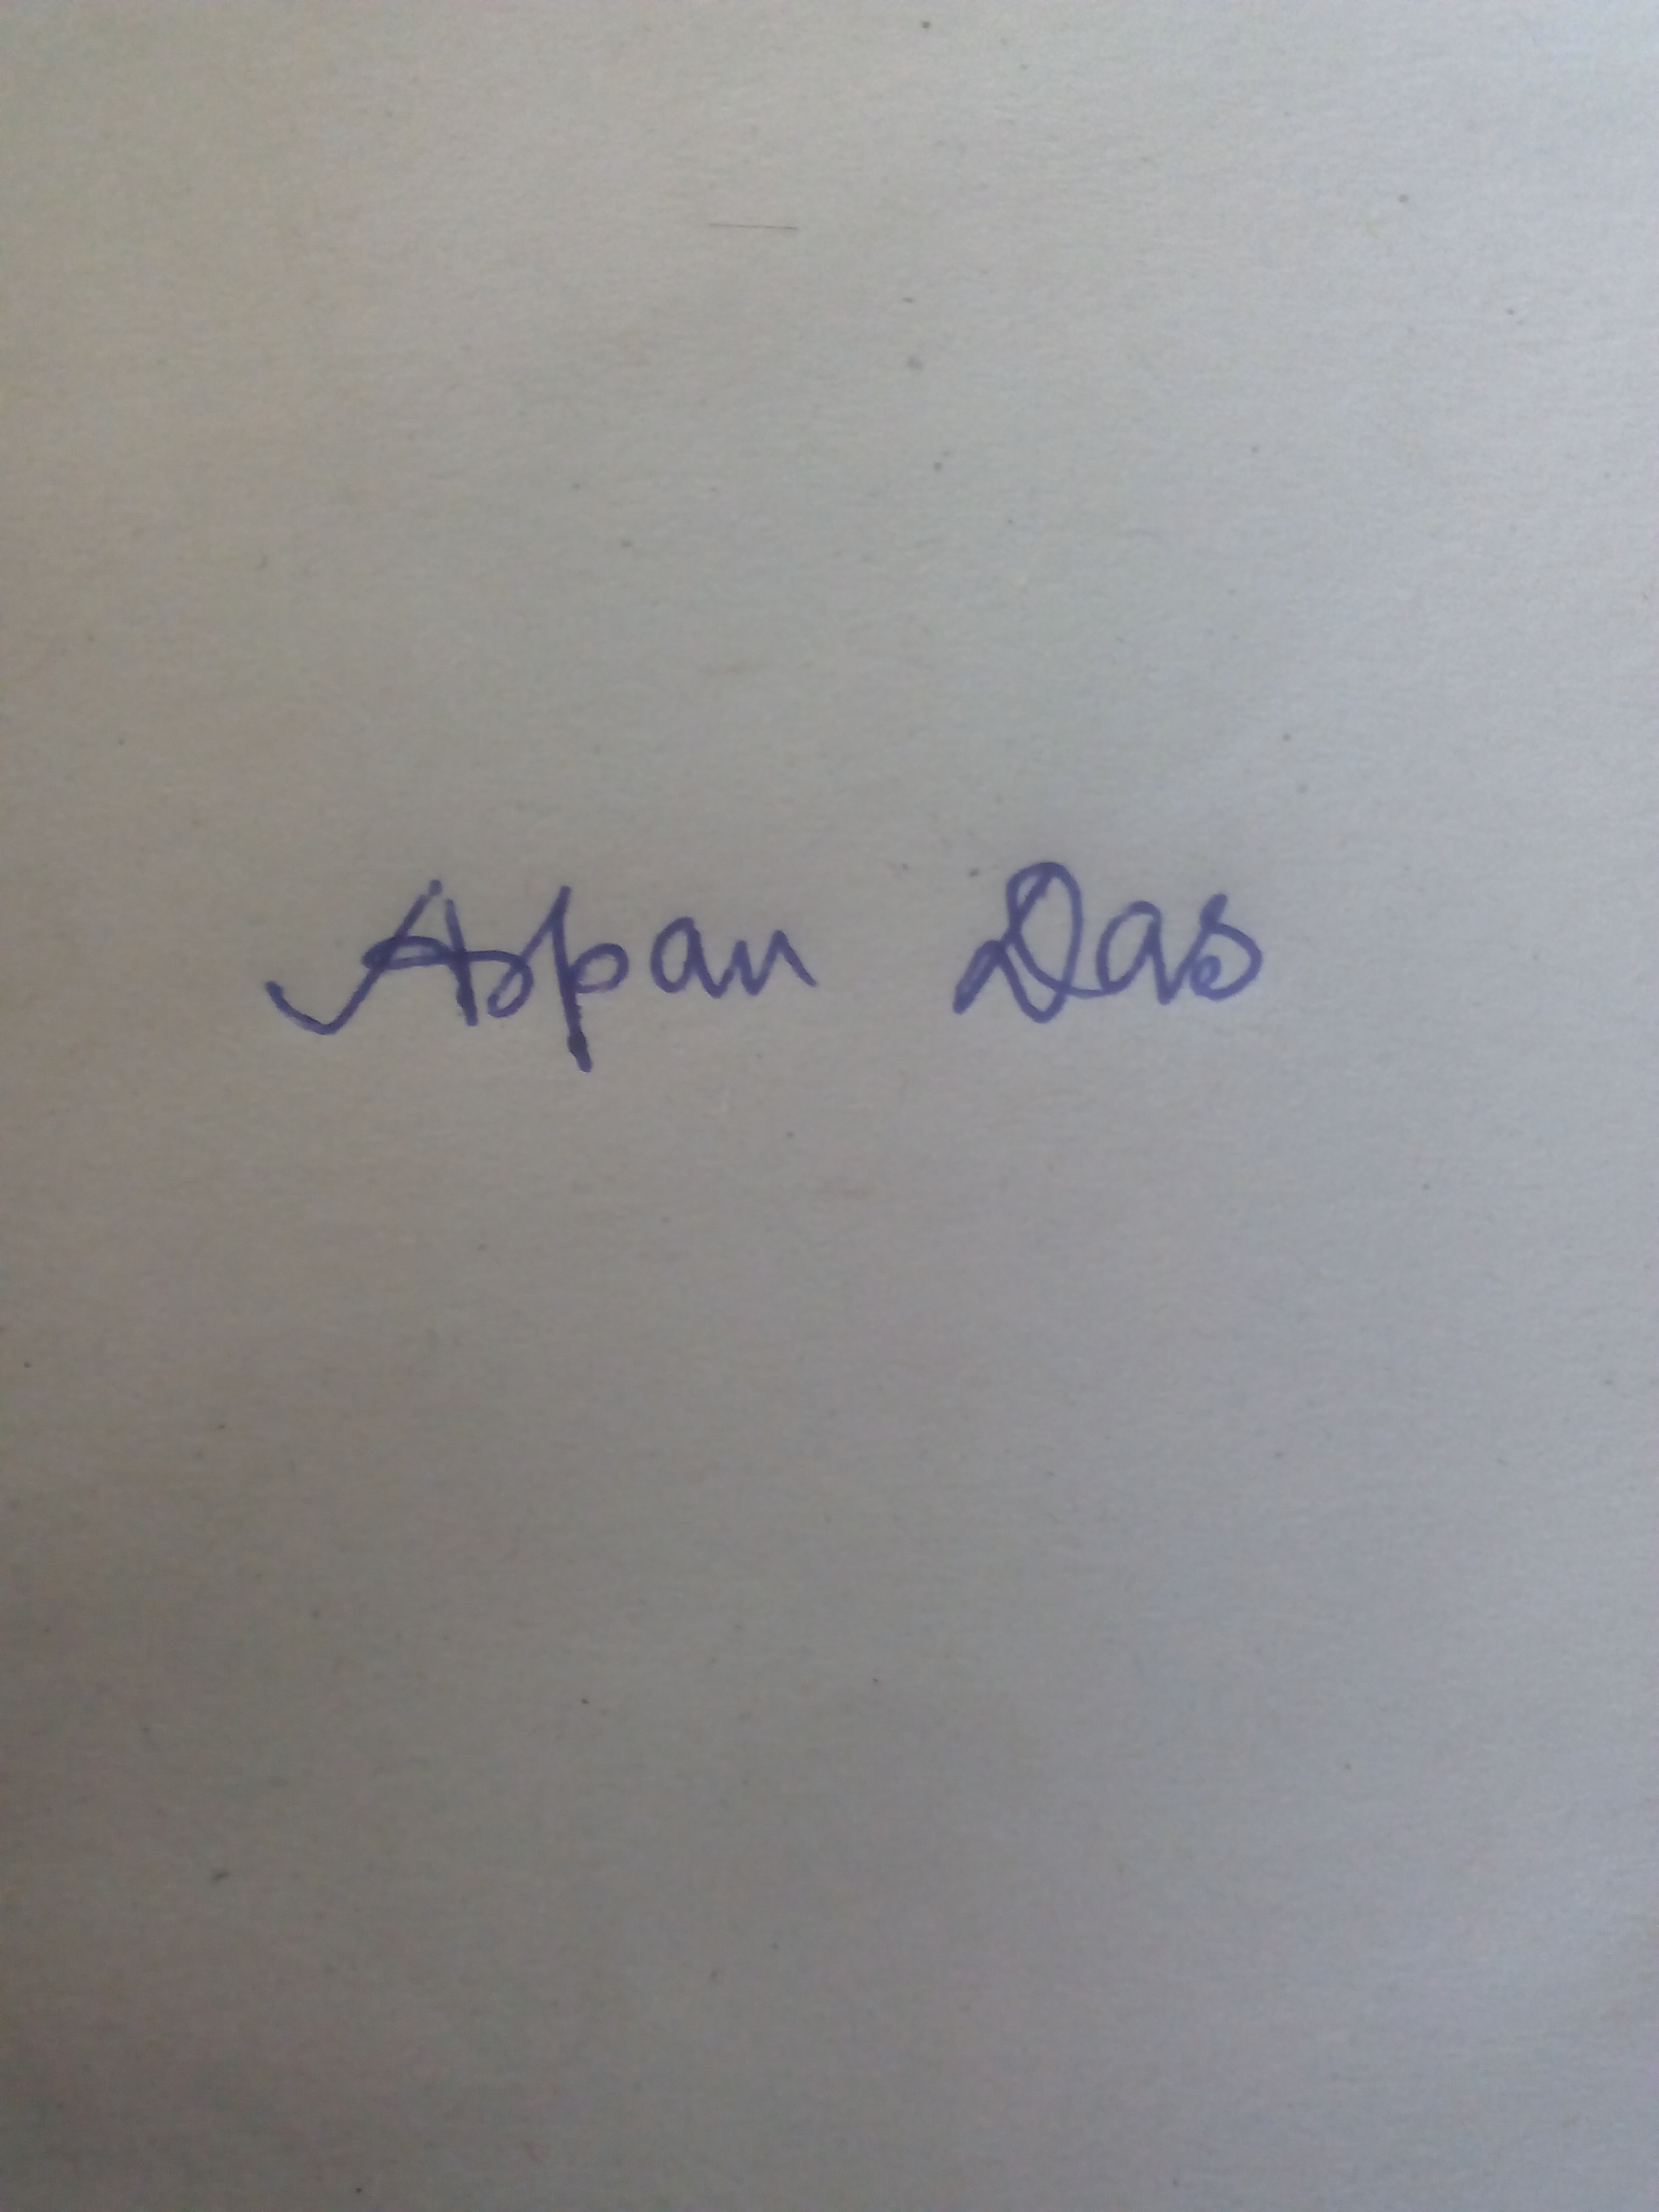 Arpan Das